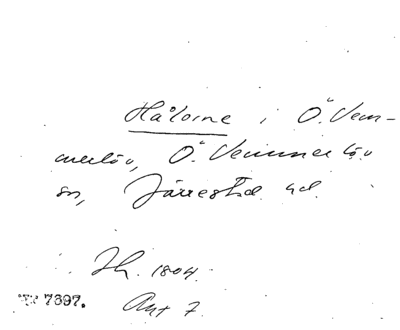 Håkorne i Ö. Vem-
merlöv, Ö. Vemmerlöv
sn, Järrestad hd.
Jh. 1804.
7397. Ant 7.